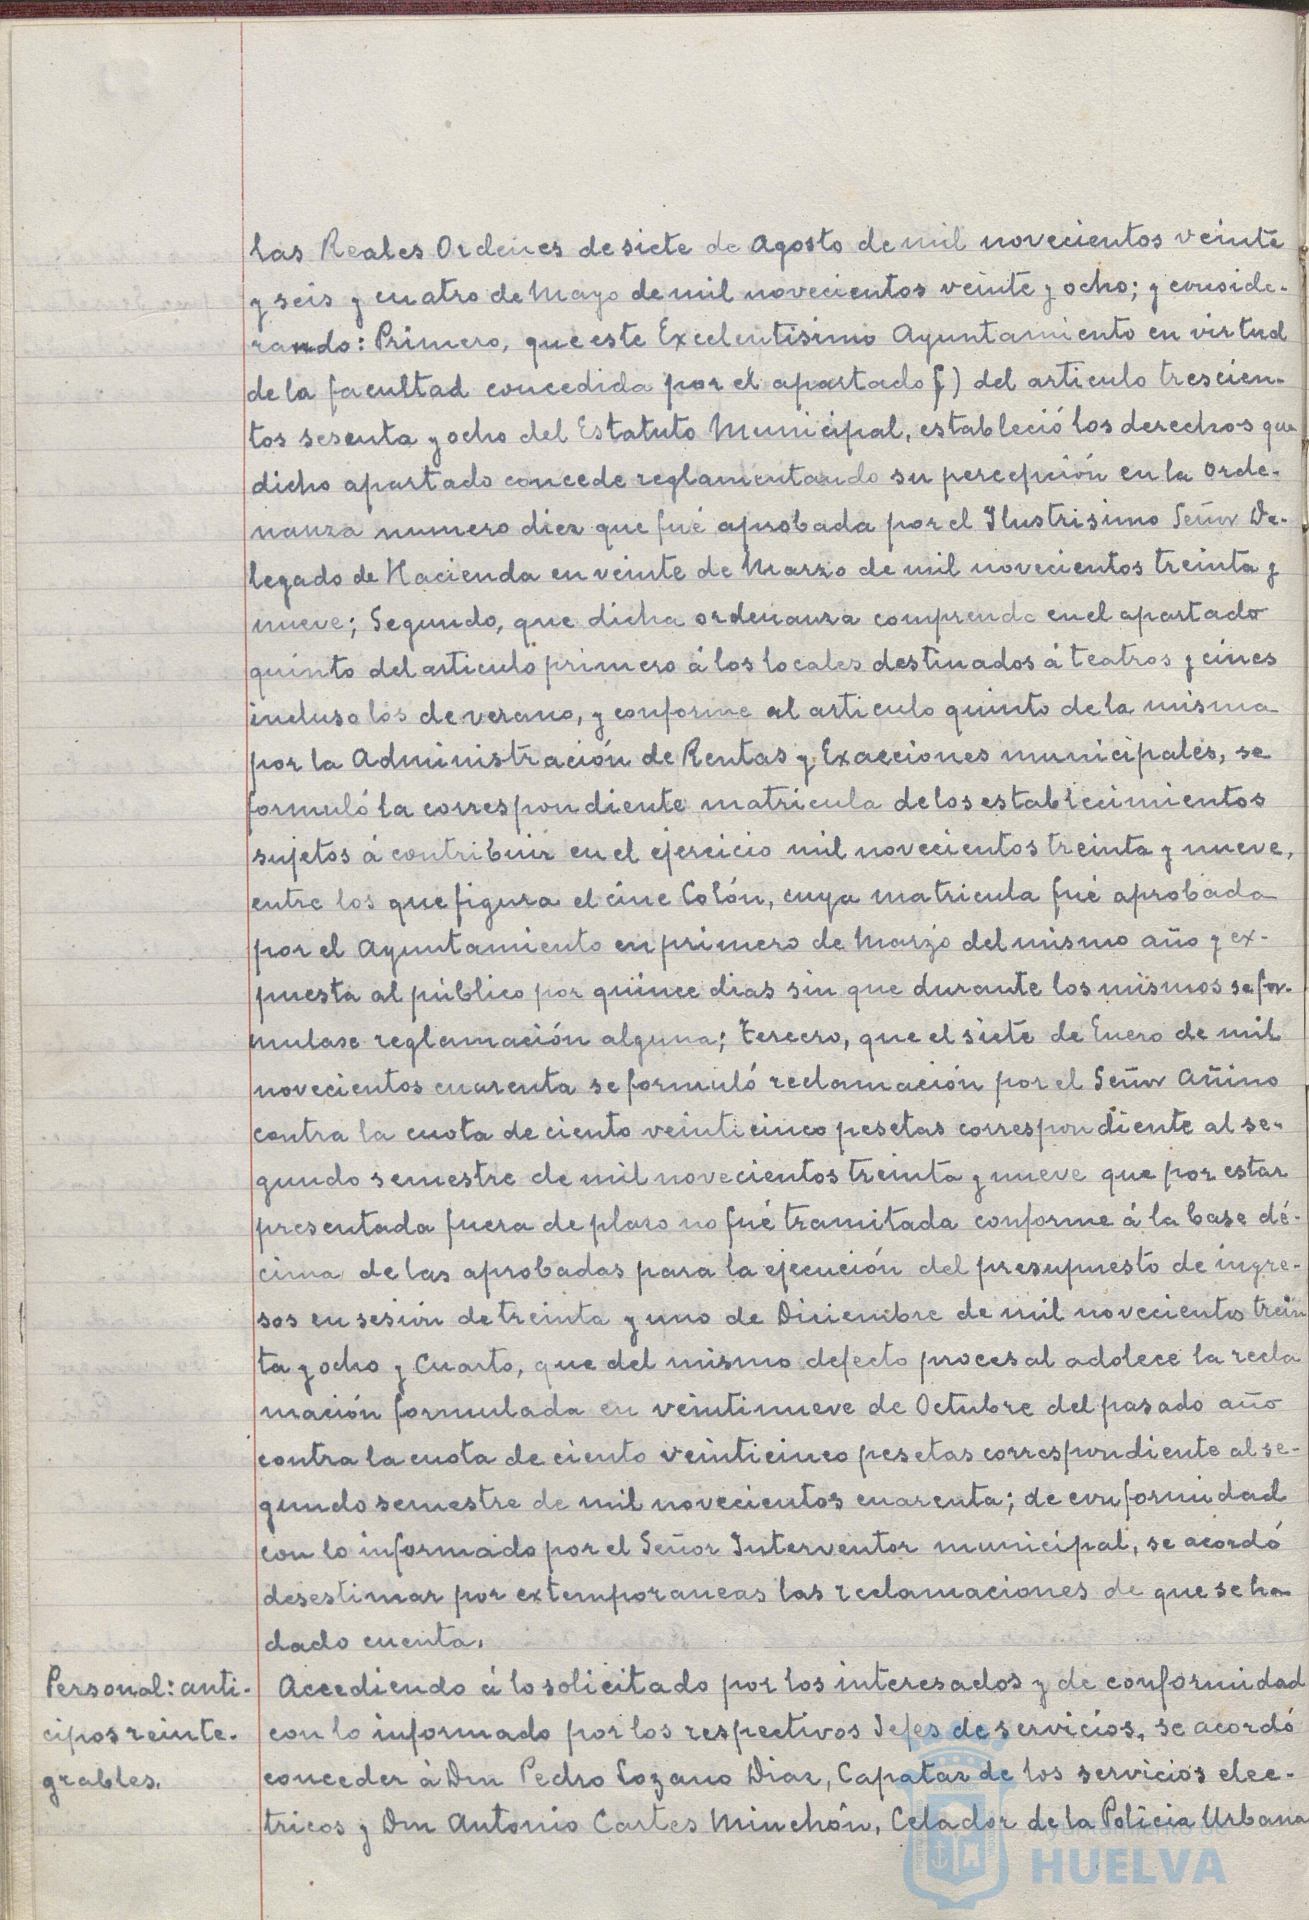 las Reales Ordenes de siete de Agosto de mil novecientos veinte
y seis y cuatro de Mayo de mil novecientos veinte y ocho; y conside-
rando: Primero, que este Excelentisimo Ayuntamiento en virtud
de la facultad concedida por el apartado f) del articulo trescien-
tos sesenta y ocho del Estatuto Municipal, estableció los derechos que
dicho apartado concede reglamentando su percepción en la Orde-
nanza numero diez que fué aprobada por el Ilustrisimo Señor De-
legado de Hacienda en veinte de Marzo de mil novecientos treinta y
nueve; Segundo, que dicha ordenanza comprende en el apartado
quinto del articulo primero á los locales destinados á teatros y cines
incluso los de verano, y conforme al articulo quinto de la misma
por la Administración de Rentas y Exacciones municipales, se
formuló la correspondiente matricula de los establecimientos
sujetos á contribuir en el ejercicio mil novecientos treinta y nueve,
entre los que figura el cine Colón, cuya matricula fué aprobada
por el Ayuntamiento en primero de Marzo del mismo año y ex-
puesta al público por quince dias sin que durante los mismos se for-
mulase reglamación alguna; tercero, que el siete de Enero de mil
novecientos cuarenta se formuló reclamación por el Señor Añino
contra la cuota de ciento veinticinco pesetas correspondiente al se-
gundo semestre de mil novecientos treinta y nueve que por estar
presentada fuera de plazo no fué tramitada conforme á la base dé-
cima de las aprobadas para la ejecución del presupuesto de ingre-
sos en sesión de treinta y uno de Diciembre de mil novecientos trein
ta y ocho y Cuarto, que del mismo defecto procesal adolece la recla
mación formulada en veintinueve de Octubre del pasado año
contra la cuota de ciento veinticinco pesetas correspondiente al se-
gundo semestre de mil novecientos cuarenta; de conformidad
con lo informado por el Señor Interventor municipal, se acordó
desestimar por extemporaneas las reclamaciones de que se ha
dado cuenta.
Personal: anti-
cipos reinte-
grables.
Accediendo á lo solicitado por los interesados y de conformidad
con lo informado por los respectivos Jefes de servicios, se acordó
conceder á Don Pedro Lozano Diaz, Capataz de los servicios elec-
tricos y Don Antonio Cartes Minchón, Celador de la Policia Urbana
Ayuntamiento de
HUELVA